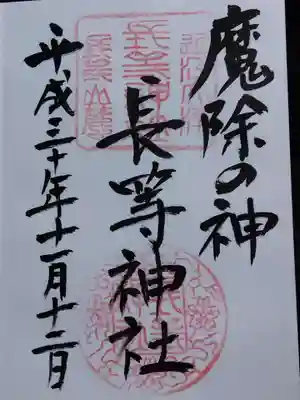 魔除の神
長等神社
平成三十年十一月十二日